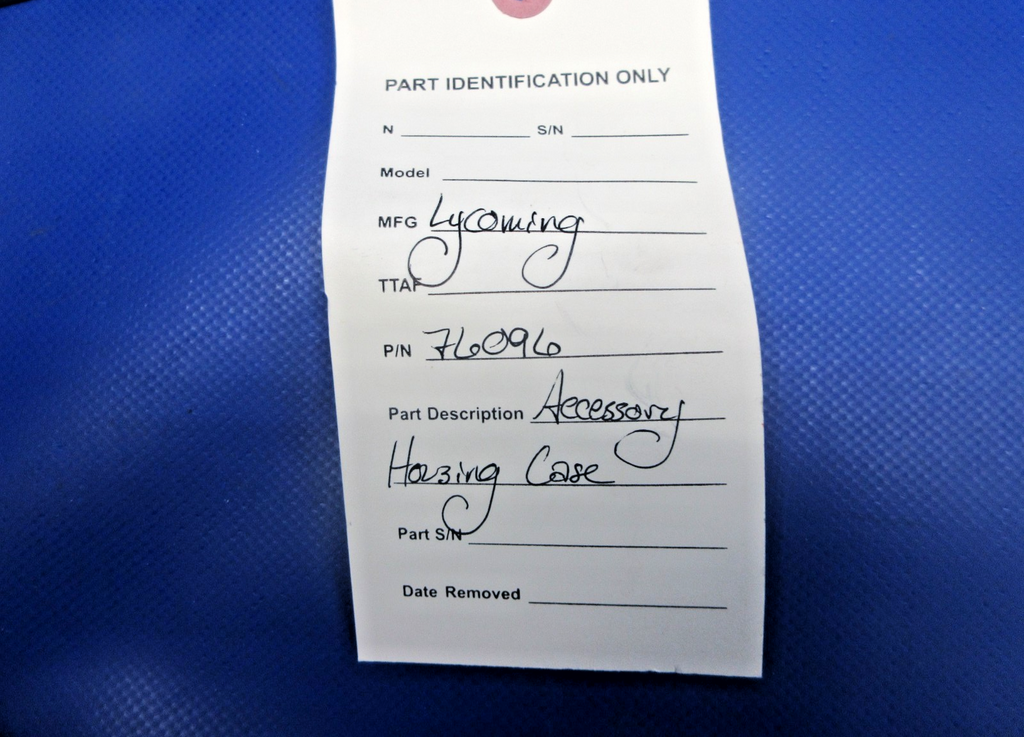 PART IDENTIFICATION ONLY
N S/N
Model
MFG Lycoming
TTAF
P/N 76096
Part Description Accessory
Housing Case
Part S/N
Date Removed